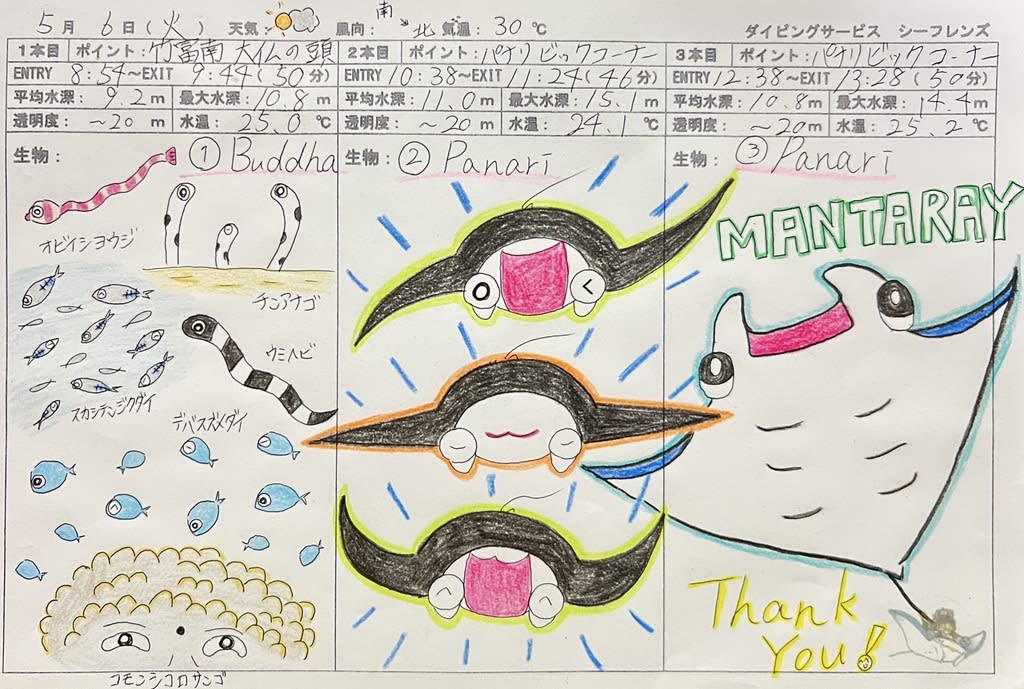 5月 6日(火) 天気: 風向: 南→北 気温: 30℃ ダイビングサービス シーフレンズ
1本目 ポイント: 竹富南 大仏の頭
ENTRY 8:54〜EXIT 9:44(50分)
平均水深: 9.2m 最大水深: 10.8m
透明度: 〜20m 水温: 25.0℃
生物: ① Buddha
オビイシヨウジ
チンアナゴ
ウミヘビ
スカシテンジクダイ
デバスズメダイ
コモンシコロサンゴ
2本目 ポイント: パナリビックコーナー
ENTRY 10:38〜EXIT 11:24(46分)
平均水深: 11.0m 最大水深: 15.1m
透明度: 〜20m 水温: 24.1℃
生物: ② Panari
3本目 ポイント: パナリビックコーナー
ENTRY 12:38〜EXIT 13:28(50分)
平均水深: 10.8m 最大水深: 14.4m
透明度: 〜20m 水温: 25.2℃
生物: ③ Panari
MANTARAY
Thank
You!